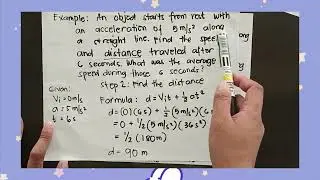 Example: An object starts from rest with
an acceleration of 5m/s² along
a straight line. Find the speed
and distance traveled after
6 seconds. What was the average
speed during those 6 seconds?
Step 2: Find the distance
Given:
Vi = 0m/s
a = 5m/s²
t = 6s
Formula: d = Vit + ½ at²
d = (0)(6s) + ½ (5m/s²)(6
= 0 + ½(5m/s²)(36s²)
= ½ (180m)
d = 90 m